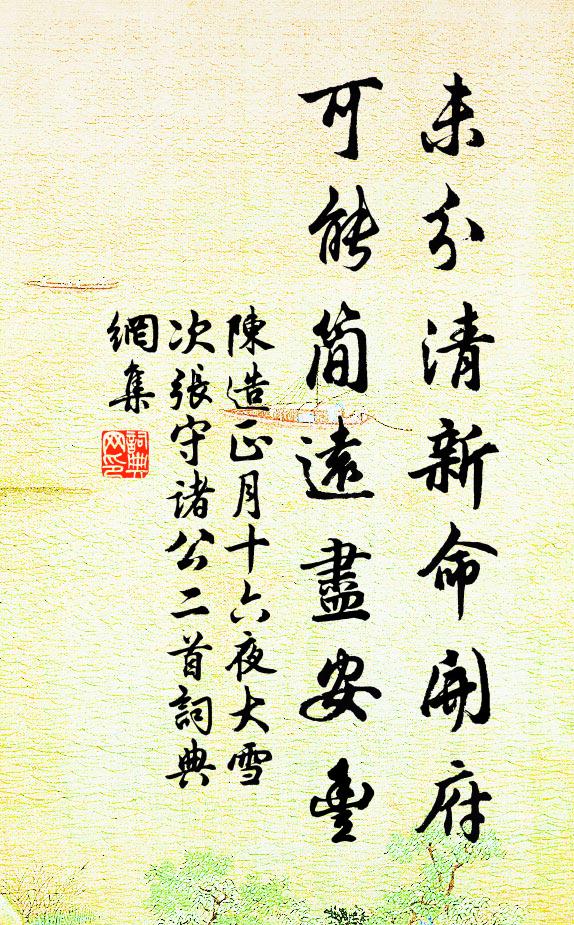 未分清新命開府
可能簡遠盡安豐
陳造正月十六夜大雪
次張守諸公二首詞典
網集
詞典網印